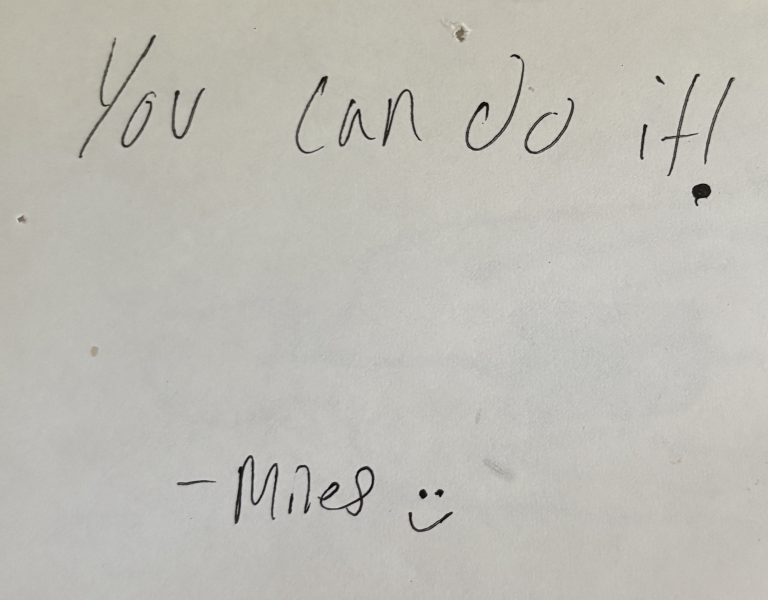 You can do it!
- Miles :)